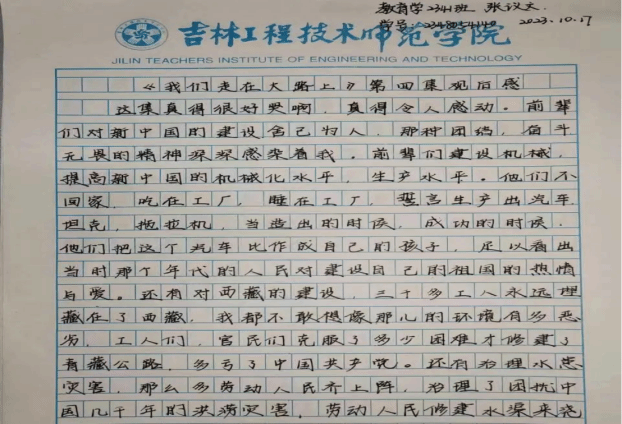 教育学2341班 张议文
学号 2348054140 2023.10.17
吉林工程技术师范学院
JILIN TEACHERS INSTITUTE OF ENGINEERING AND TECHNOLOGY
《我们走在大路上》第四集观后感
这集真得很好哭啊，真得令人感动。前辈
们对新中国的建设舍己为人，那种团结，奋斗
无畏的精神深深感染着我。前辈们建设机械，
提高新中国的机械化水平，生产水平。他们不
回家，吃在工厂，睡在工厂，誓言生产出汽车
坦克，拖拉机，当造出的时候，成功的时候，
他们把这个汽车比作成自己的孩子，足以看出
当时那个年代的人民对建设自己的祖国的热情
与爱。还有对西藏的建设，三千多工人永远埋
藏在了西藏，我都不敢想像那儿的环境有多恶
劣，工人们，官民们克服了多少困难才修建了
青藏公路，多亏了中国共产党。还有治理水患
灾害，那么多劳动人民齐上阵，治理了困扰中
国几千年的洪涝灾害，劳动人民修建水渠来浇